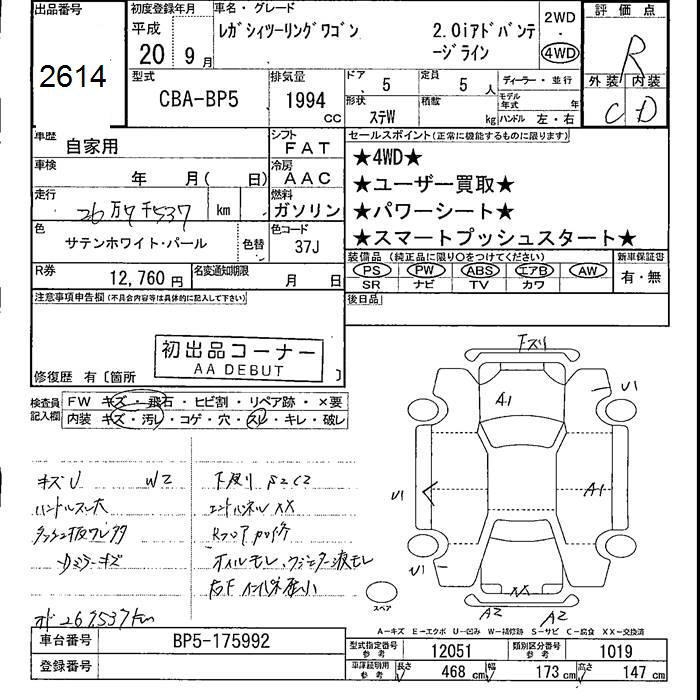 出品番号
2614
初度登録年月
平成
20年 9月
車名・グレード
レガシィツーリングワゴン
2.0iアドバンテ
ージライン
2WD
4WD
評価点
R
外装 内装
C D
型式
CBA-BP5
排気量
1994
cc
ドア 5
定員 5人
形状 ステW
積載 kg
ディーラー・並行
モデル年式 年
ハンドル 左・右
車歴
自家用
シフト
FAT
車検
年 月( 日)
冷房
AAC
走行
26万7千537 km
燃料
ガソリン
色
サテンホワイト・パール
色替
色コード
37J
R券
12,760円
名変通知期限
月 日
セールスポイント(正常に機能するものに限ります)
★4WD★
★ユーザー買取★
★パワーシート★
★スマートプッシュスタート★
装備品(純正品に限り○をつけてください)
PS PW ABS エアB AW
SR ナビ TV カワ
新車保証書
有・無
後日品
注意事項申告欄(不具合内容等は具体的に記入して下さい)
初出品コーナー
AA DEBUT
修復歴 有〔箇所 〕
検査員
記入欄
FW キズ・飛石・ヒビ割・リペア跡・×要
内装 キズ・汚レ・コゲ・穴・スレ・キレ・破レ
キズU W2
下廻り S2C2
ハンドルスレ大
XX
Dミラーキズ
オイルモレ
オド 267,537km
下スリ
A1
U1
U1
A1
U1
XX
A2 A2
スペア
A－キズ E－エクボ U－凹み W－補修跡 S－サビ C－腐食 XX－交換済
車台番号
BP5-175992
登録番号
型式指定番号
参考
12051
類別区分番号
参考
1019
車庫証明用
参考
長さ 468cm 幅 173cm 高さ 147cm